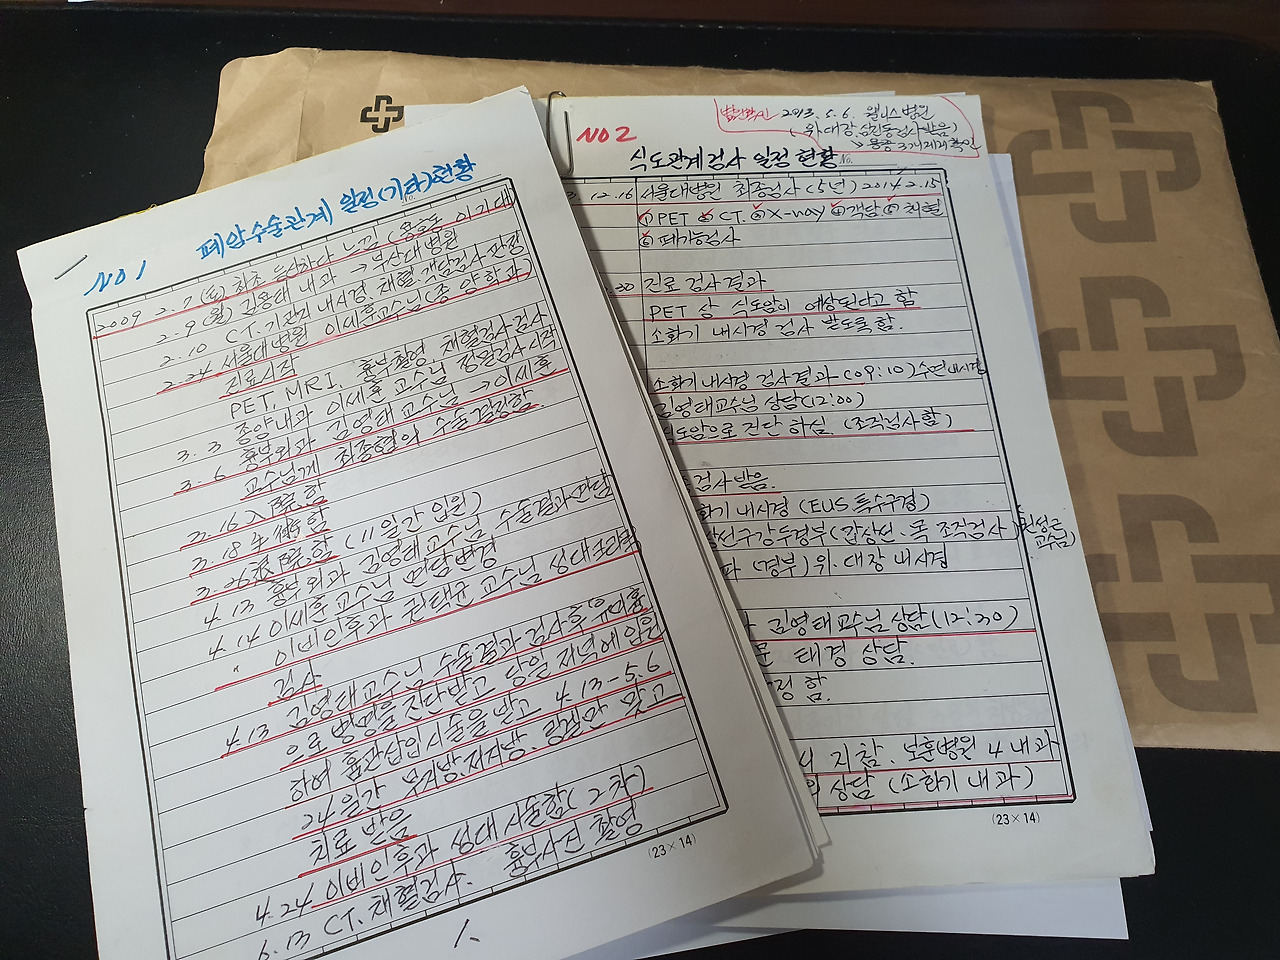 NO 1
폐암수술관계 일정(기타)현황
2009 2.7(토) 최초 운산하다 느낌 (용호동 이기대
2.9(월) 김용태 내과 → 부산대병원
2.10 CT. 기관지 내시경 채혈. 객담검사 판정
2.24 서울대병원 이세훈교수님(종양학과)
진료시작
PET, MRI, 흉부촬영, 채혈검사 검사
3.3 종양내과 이세훈 교수님 정밀검사시작
3.6 흉부외과 김영태 교수님 → 이세훈
교수님께 최종협의 수술결정함.
3.16 入院함
3.18 手術함
3.26 退院함 (11일간 입원)
4.13 흉부외과 김영태교수님 수술결과면담
4.14 이세훈 교수님 면담변경
" 이비인후과 권택균 교수님 성대초음파
검사
4.13 김영태교수님 수술결과 검사후 유미흉
으로 병명을 진단받고 당일 저녁에 입원
하여 흉관삽입시술을 받고 4.13-5.6
24일간 무지방.저지방. 링겔만 맞고
치료 받음
4.24 이비인후과 성대시술함(2차)
6.13 CT. 채혈검사. 흉부사진 촬영
(23×14)
1.
NO 2
2013. 5. 6. 웰니스병원
(위.대장.심진동검사받음)
→ 용종 3개 제거 확인
식도관계검사 일정 현황
No.
12.16 서울대병원 최종검사(5년) 2014.2.15
①PET ②CT. ③X-ray ④객담 ⑤채혈
⑥폐기능검사
20 진료 검사결과
PET 상 식도암이 예상된다고 함
소화기 내시경 검사 받도록함.
소화기 내시경 검사결과(09:10)수면내시경
김영태교수님 상담(12:00)
식도암으로 진단 하심. (조직검사함)
검사받음.
화기 내시경 (EUS 특수구경)
상선구강두경부(갑상선.목 조직검사)
교수님)
파 (경부) 위.대장 내시경
김영태교수님 상담(12:30)
문 태경 상담.
정함.
지참. 보훈병원 4내과
상담 (소화기 내과)
(23×14)